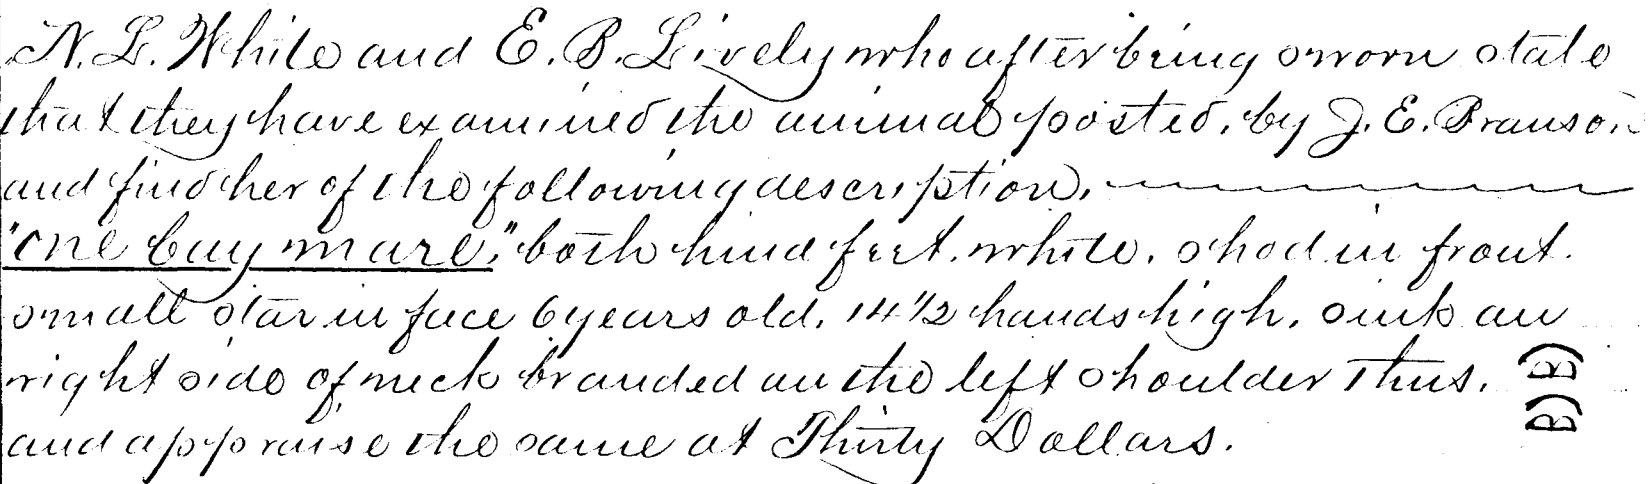 N. L. White and E. B. Lively who after being sworn state
that they have examined the animal posted, by J. E. Branson
and find her of the following description,
"one bay mare," both hind feet. white. shod in front.
small star in face 6 years old. 14 1/2 hands high. sink an
right side of neck branded an the left shoulder Thus. B) B)
and appraise the same at Thirty Dollars.